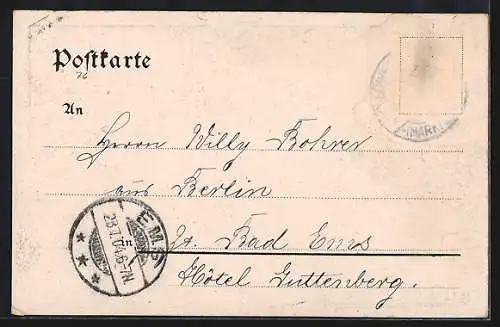 Postkarte
76
An
Herrn Willy Bohrer
aus Berlin
Bad Ems
Hôtel Guttenberg.
EMS
(MARK)